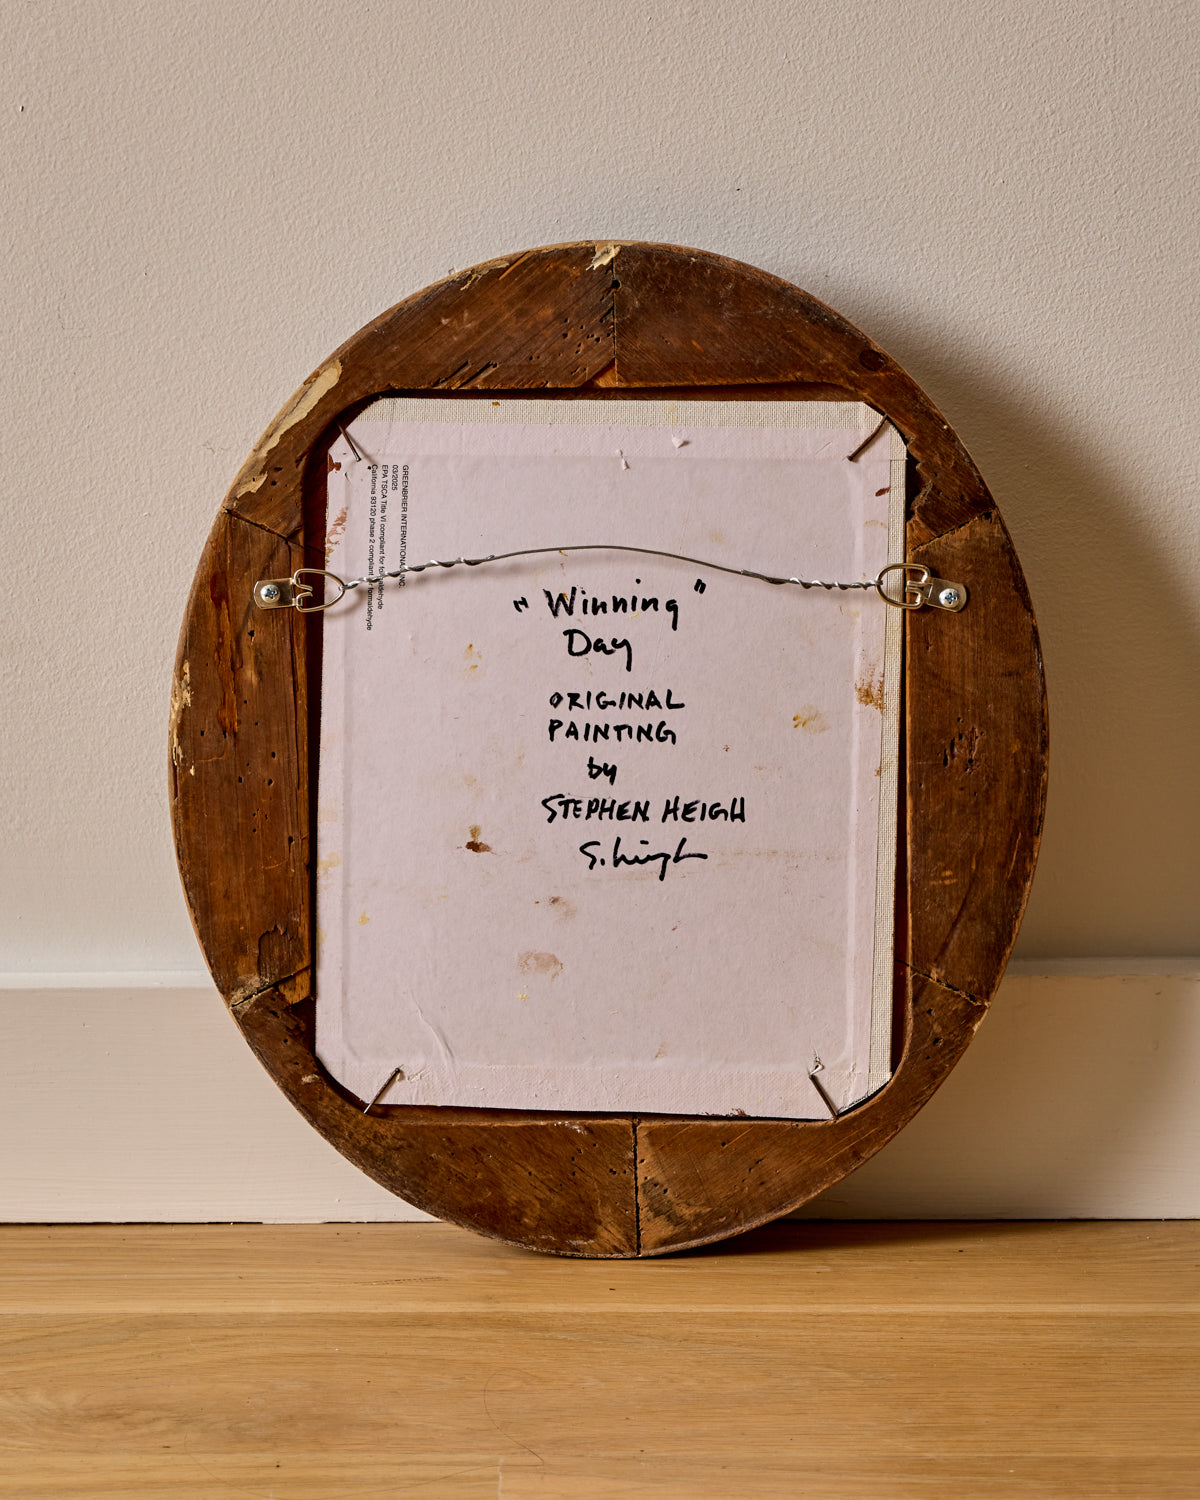 GREENBRIER INTERNATIONAL, INC.
03/2025
EPA TSCA Title VI compliant for formaldehyde
California 93120 phase 2 compliant for formaldehyde
"Winning"
Day
ORIGINAL
PAINTING
by
STEPHEN HEIGH
S. Heigh